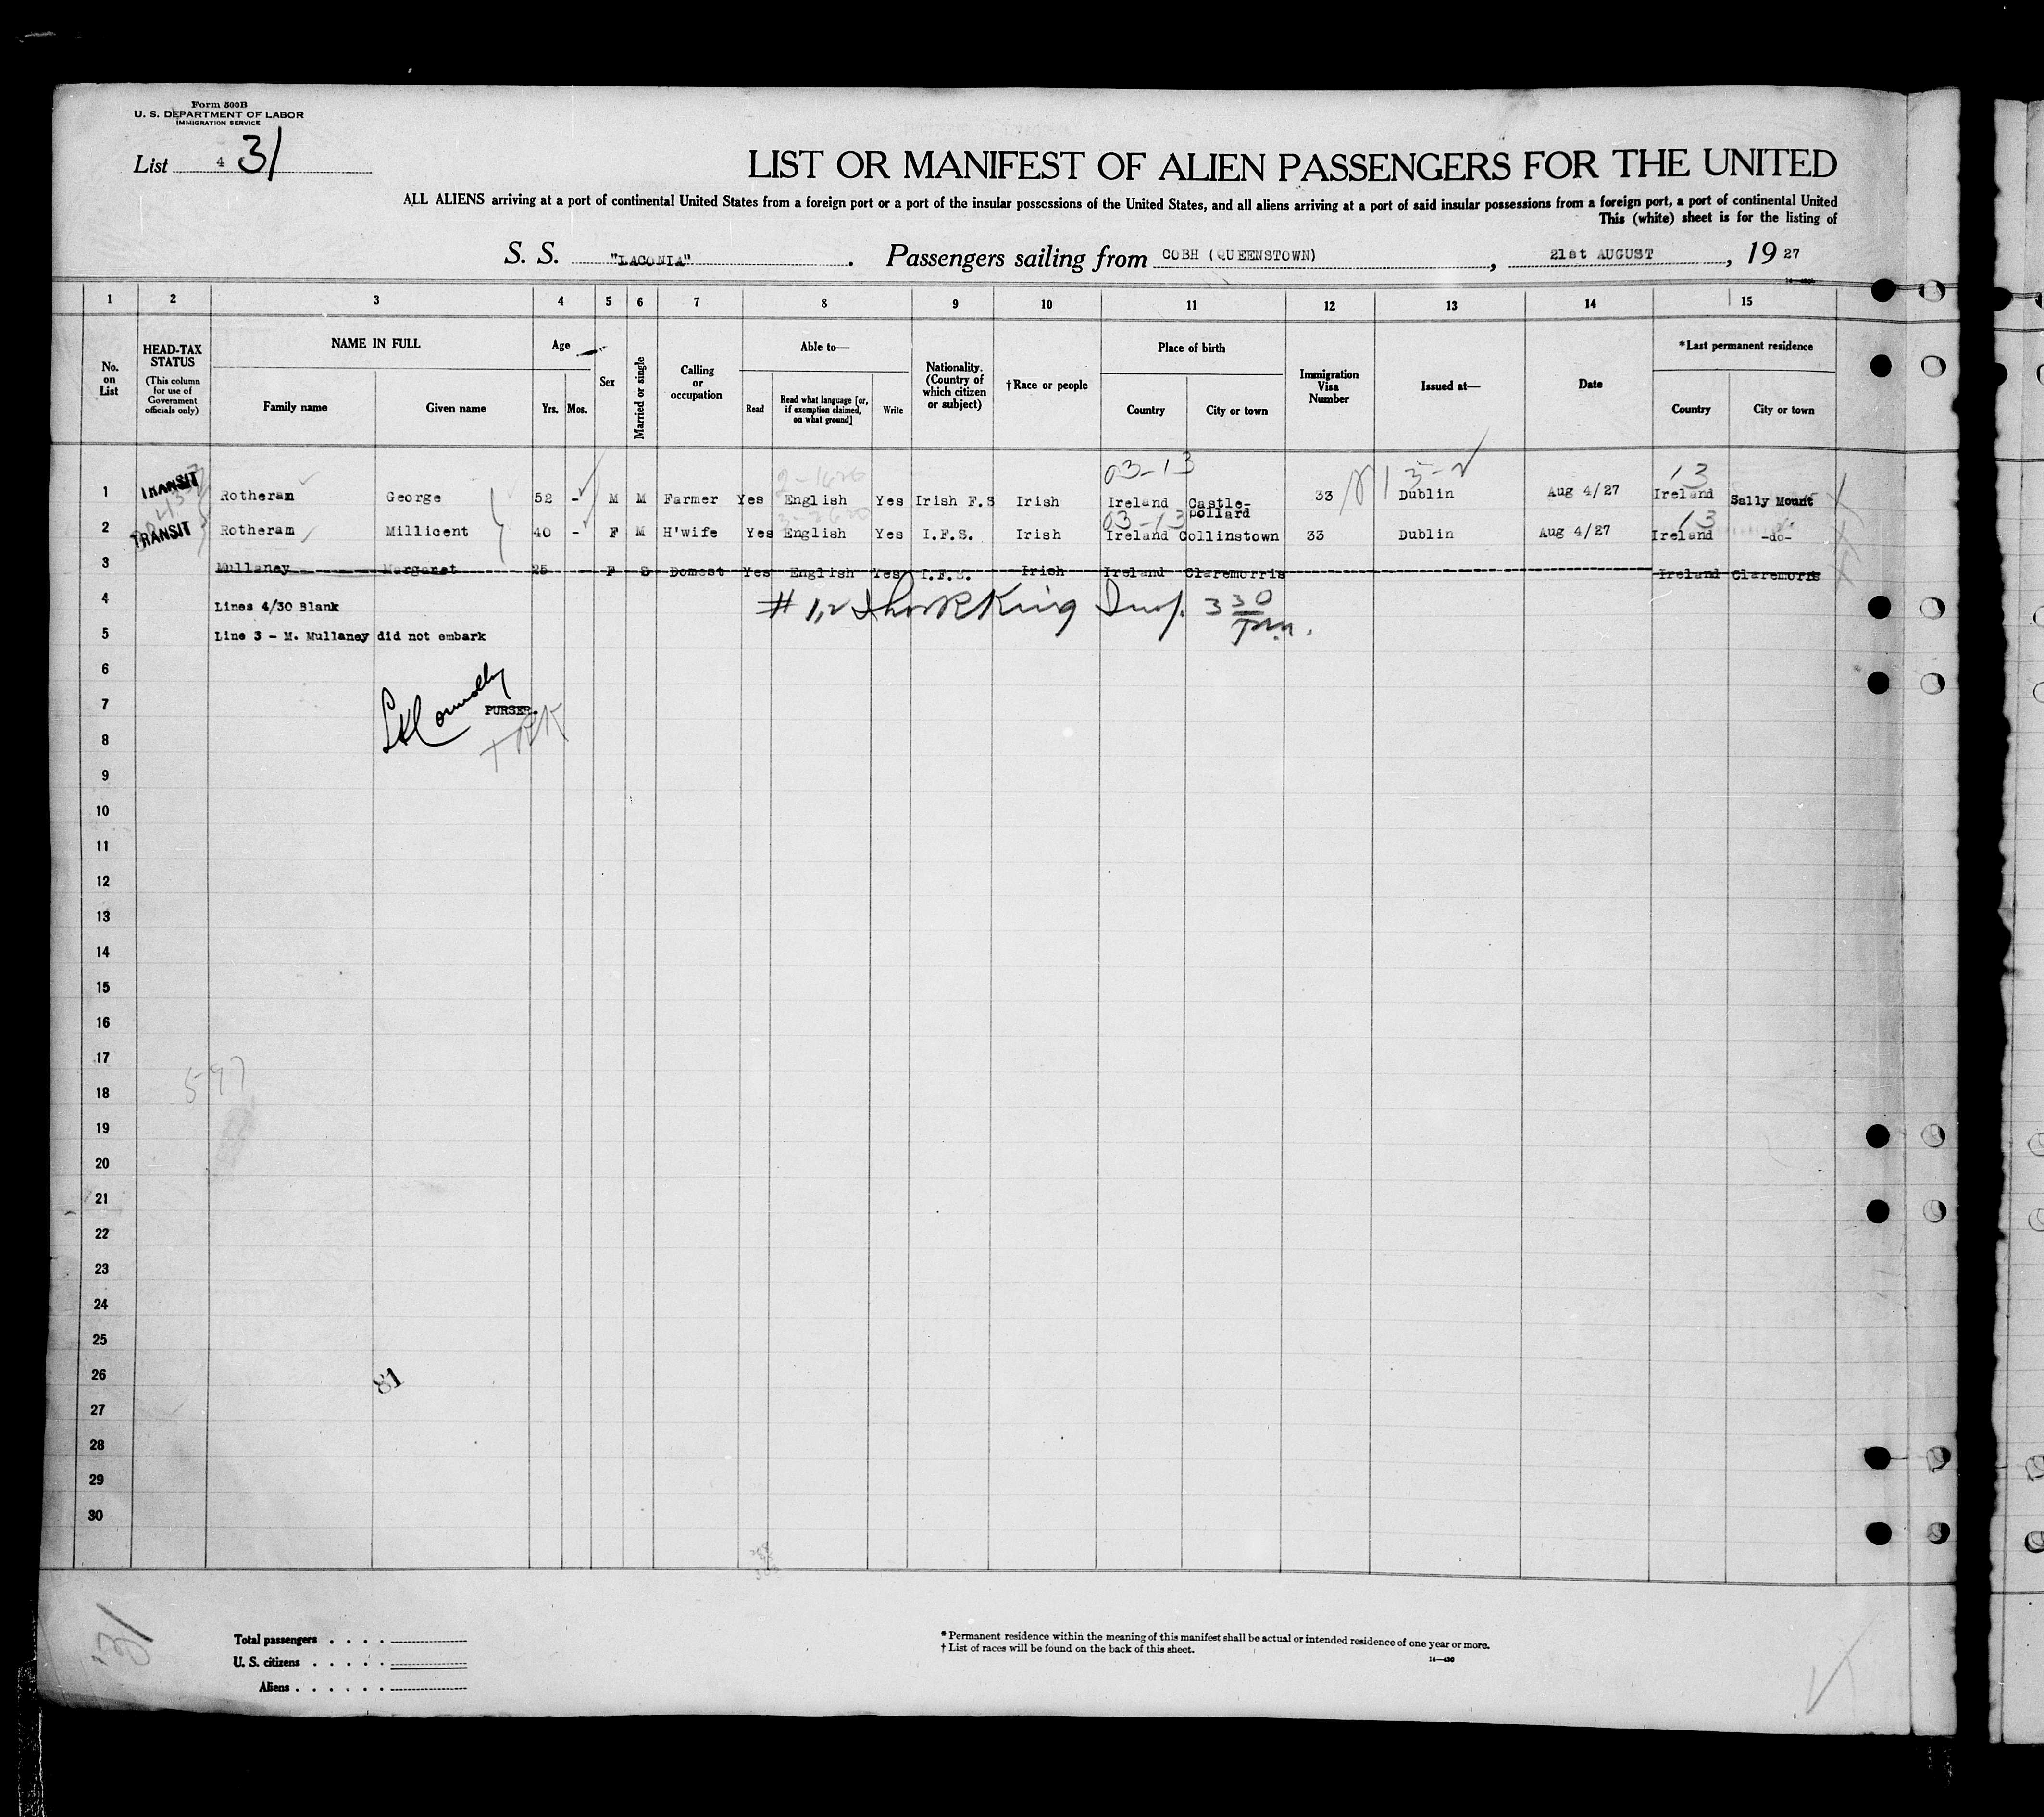 Form 500B
U. S. DEPARTMENT OF LABOR
IMMIGRATION SERVICE
List 4 31
LIST OR MANIFEST OF ALIEN PASSENGERS FOR THE UNITED
ALL ALIENS arriving at a port of continental United States from a foreign port or a port of the insular possessions of the United States, and all aliens arriving at a port of said insular possessions from a foreign port, a port of continental United
This (white) sheet is for the listing of
S. S. "LACONIA". Passengers sailing from COBH (QUEENSTOWN), 21st AUGUST, 19 27
1 2 3 4 5 6 7 8 9 10 11 12 13 14 15
No. on List
HEAD-TAX STATUS
(This column for use of Government officials only)
NAME IN FULL
Family name Given name
Age
Yrs. Mos.
Sex
Married or single
Calling or occupation
Able to—
Read
Read what language [or, if exemption claimed, on what ground]
Write
Nationality. (Country of which citizen or subject)
†Race or people
Place of birth
Country City or town
Immigration Visa Number
Issued at—
Date
*Last permanent residence
Country City or town
03-13 13
1 TRANSIT Rotheram George 52 - M M Farmer Yes English Yes Irish F.S Irish Ireland Castle-pollard 33 Dublin Aug 4/27 Ireland Sally Mount
03-13 13
2 TRANSIT Rotheram Millicent 40 - F M H'wife Yes English Yes I.F.S. Irish Ireland Collinstown 33 Dublin Aug 4/27 Ireland -do-
3 Mullaney Margaret 25 F S Domest Yes English Yes I.F.S. Irish Ireland Claremorris Ireland Claremorris
4 Lines 4/30 Blank
# 1,2 King Insp. 3 30
5 Line 3 - M. Mullaney did not embark
6
7 PURSER.
8
9
10
11
12
13
14
15
16
17
597
18
19
20
21
22
23
24
25
26
81
27
28
29
30
31
Total passengers
U. S. citizens
Aliens
* Permanent residence within the meaning of this manifest shall be actual or intended residence of one year or more.
† List of races will be found on the back of this sheet.
14—430